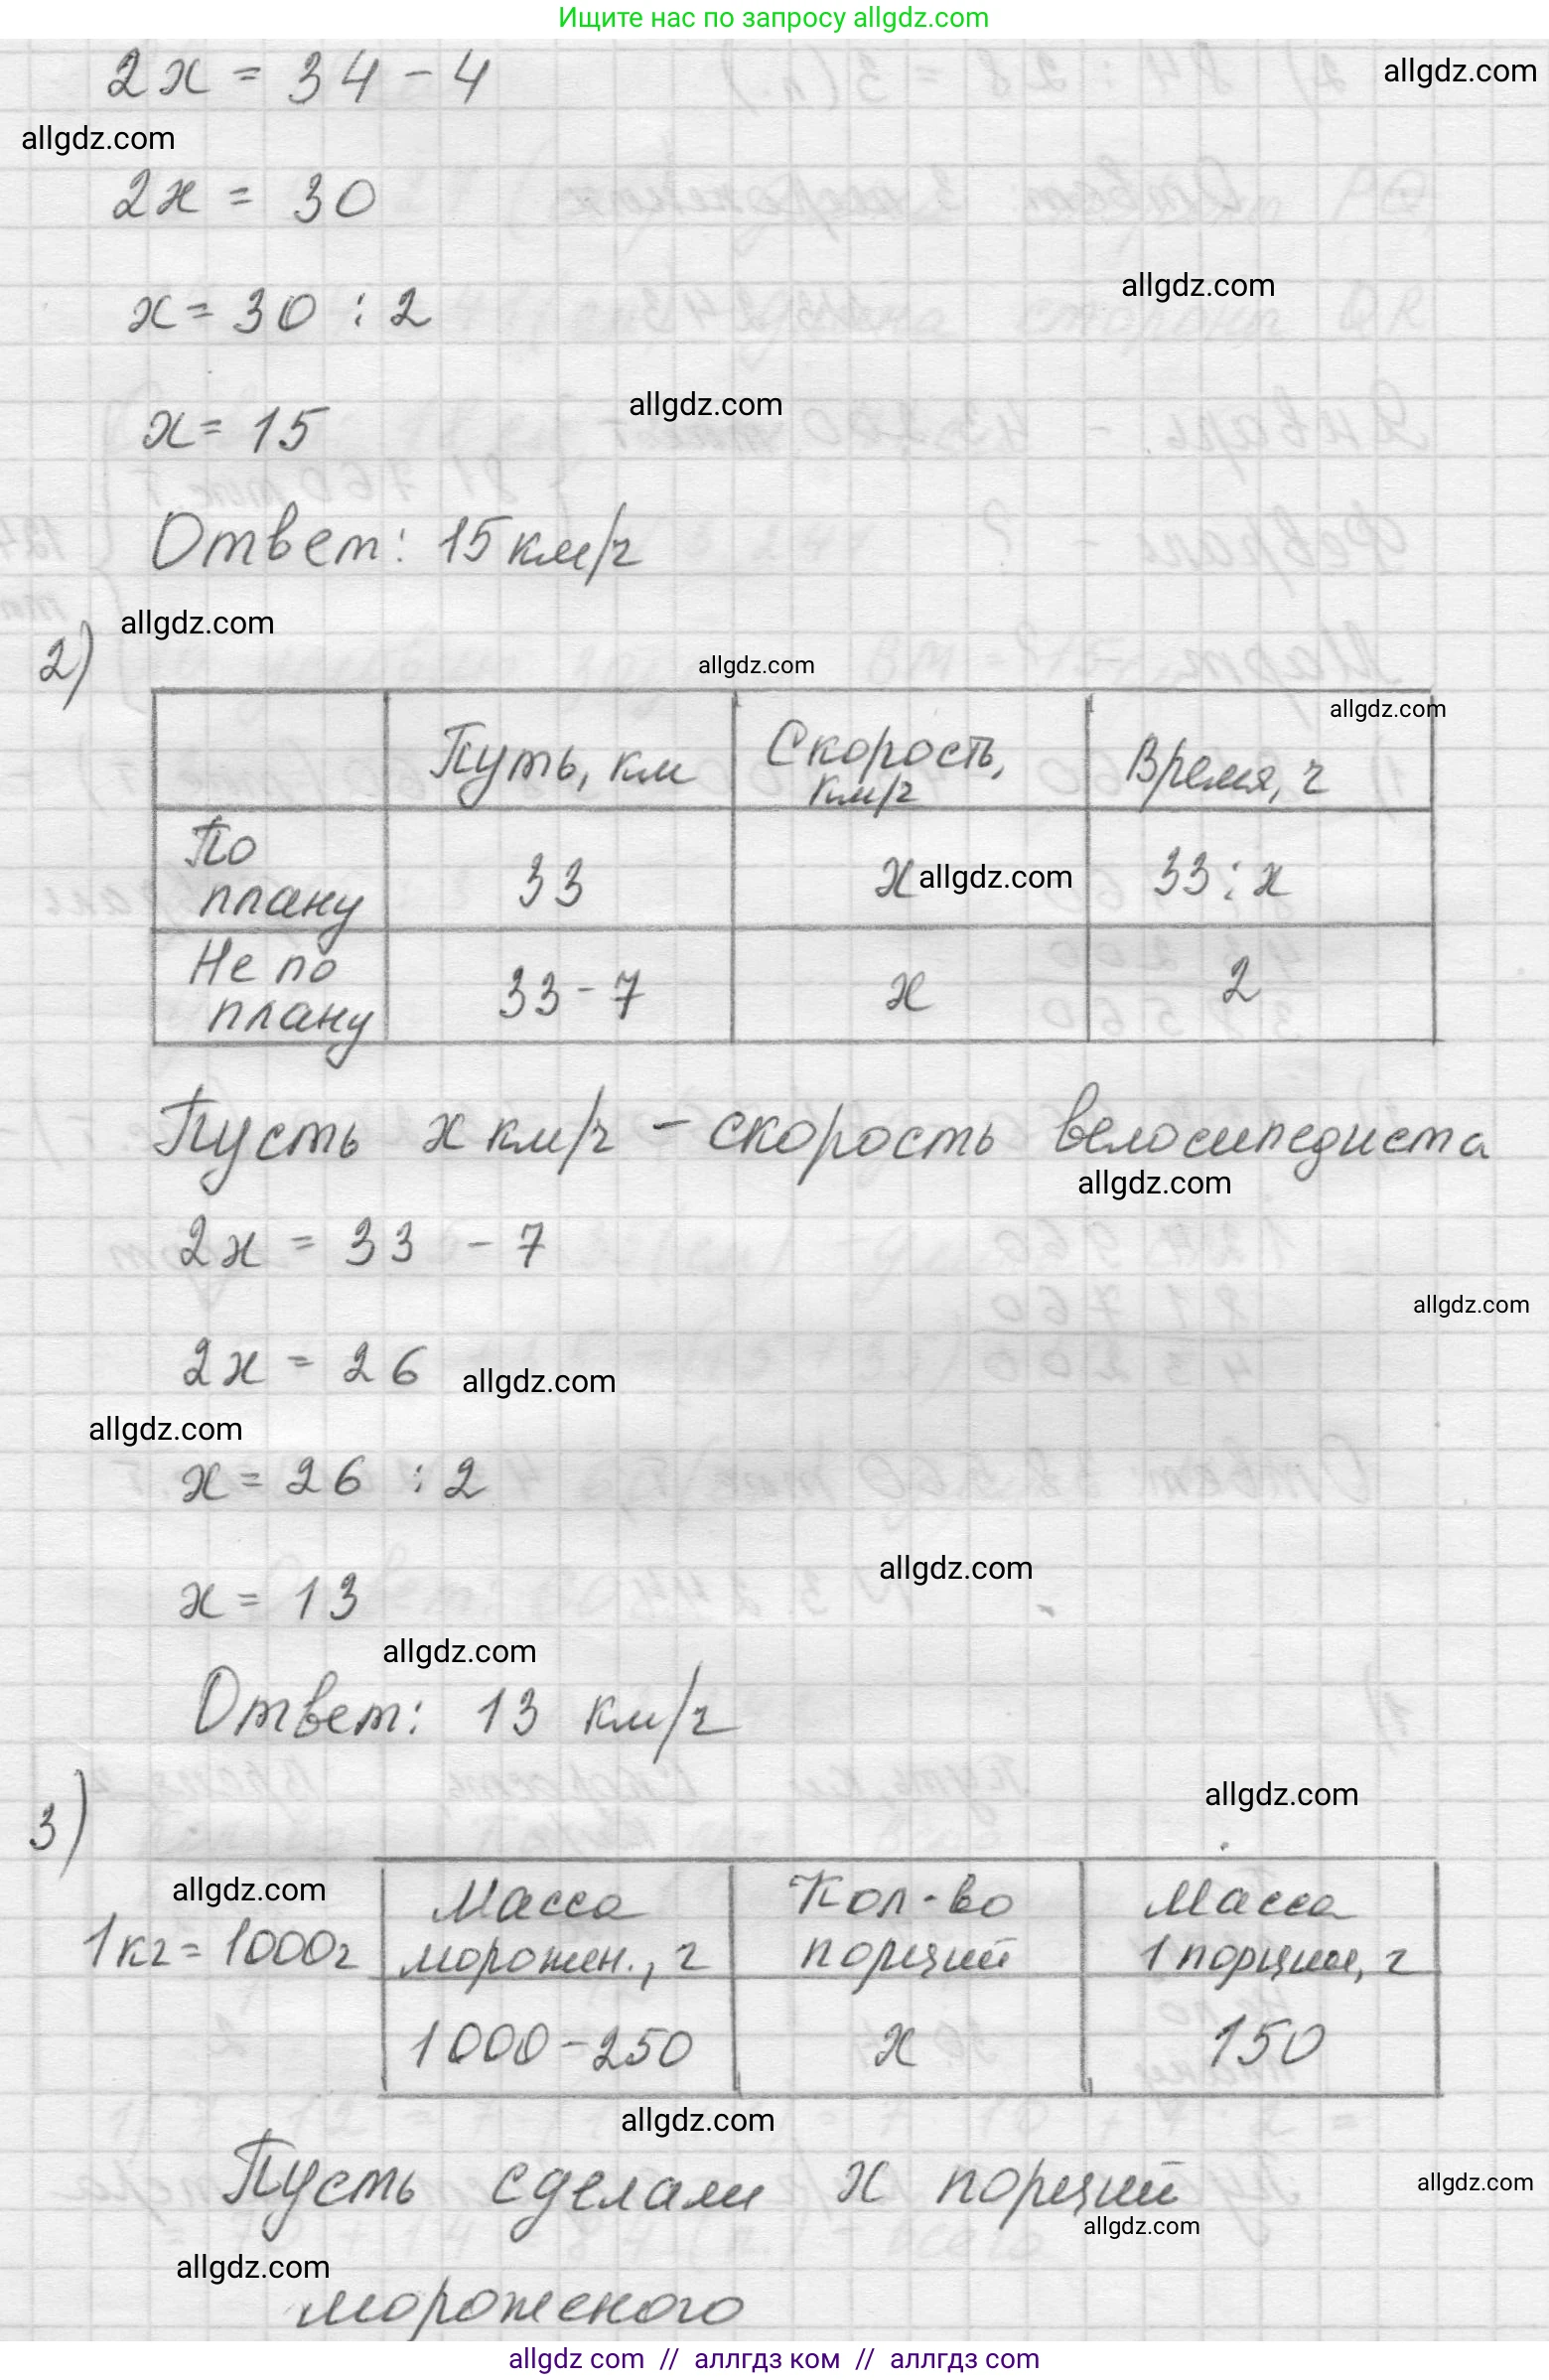 Ищите нас по запросу allgdz.com
2x = 34 - 4
allgdz.com
allgdz.com
2x = 30
allgdz.com
x = 30 : 2
allgdz.com
x = 15
Ответ: 15 км/ч
allgdz.com
2)
allgdz.com
allgdz.com
Путь, км
Скорость, км/ч
Время, ч
По плану
33
x
allgdz.com
33 : x
Не по плану
33 - 7
x
2
Пусть x км/ч - скорость велосипедиста
allgdz.com
2x = 33 - 7
allgdz.com
2x = 26
allgdz.com
allgdz.com
x = 26 : 2
allgdz.com
x = 13
allgdz.com
Ответ: 13 км/ч
allgdz.com
3)
allgdz.com
1 кг = 1000 г
Масса морожен., г
Кол-во порций
Масса 1 порции, г
1000 - 250
x
150
allgdz.com
Пусть сделали x порций
allgdz.com
allgdz.com
allgdz.com
мороженого
allgdz com // аллгдз ком // аллгдз com